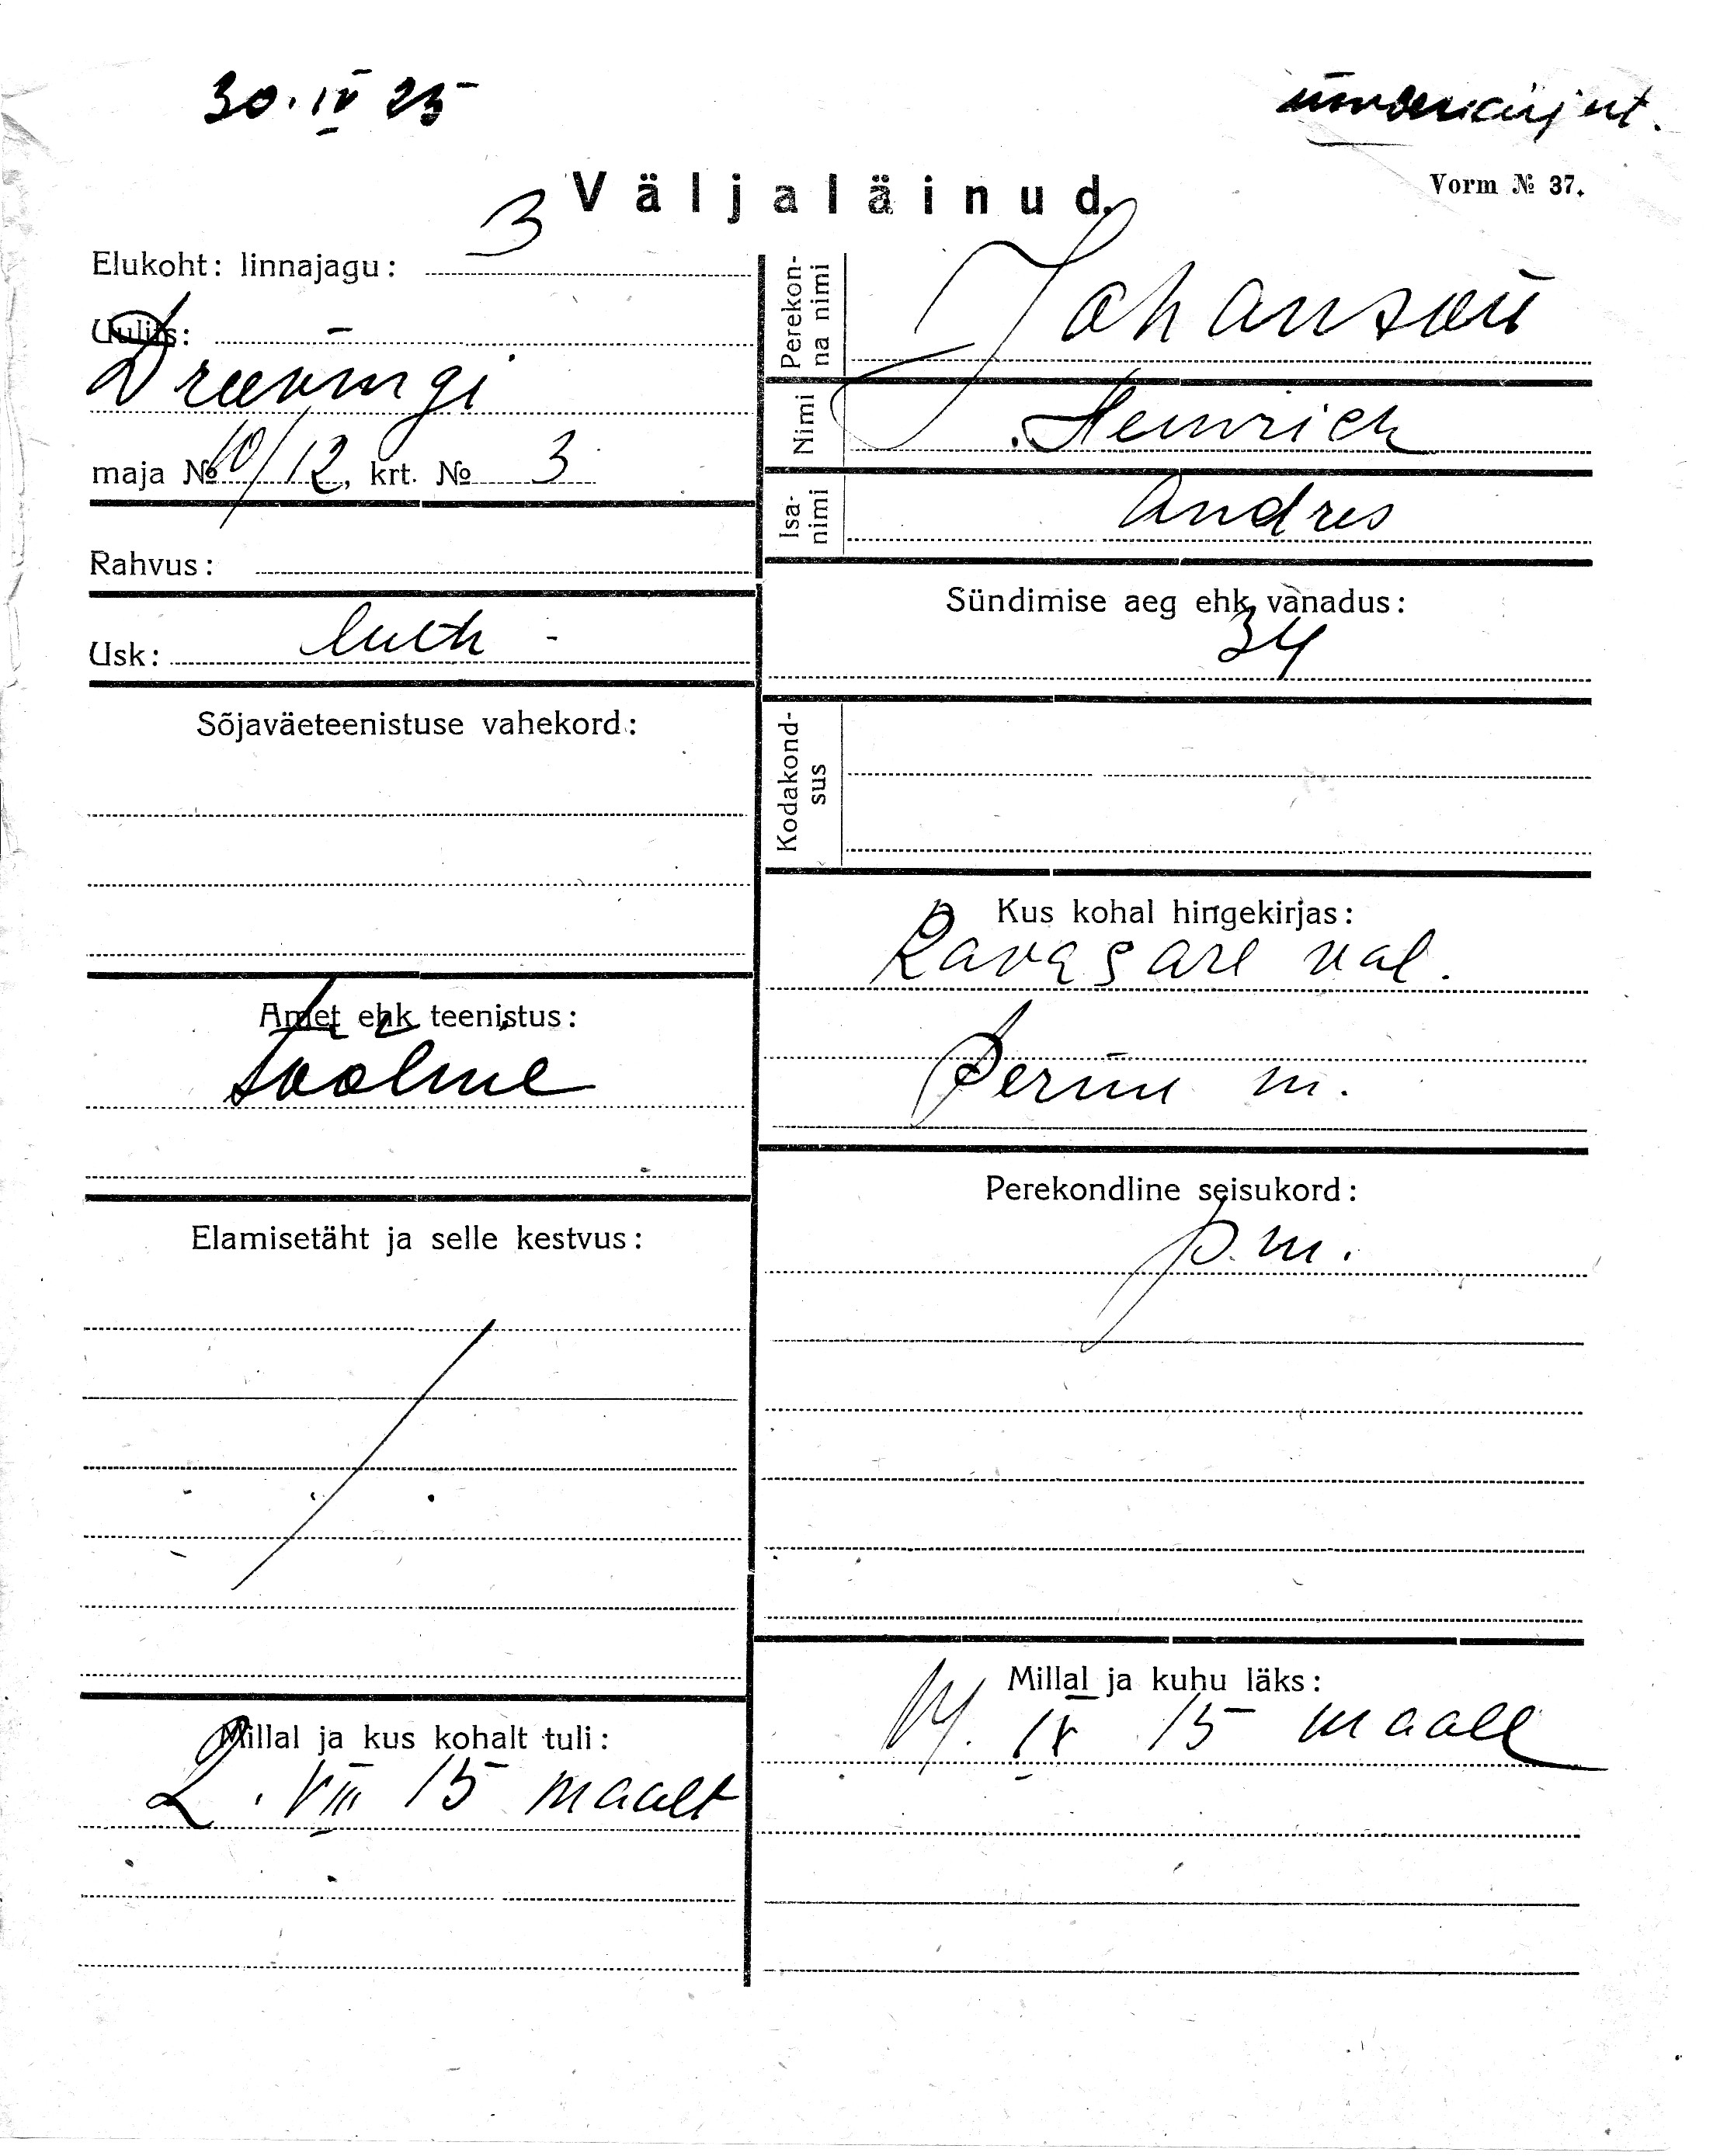 30. IV 25
ümberkirjut.
Väljaläinud.
Vorm № 37.
Elukoht: linnajagu: 3
Uulits:
maja № 10/12, krt. № 3
Rahvus:
Usk: luth -
Sõjaväeteenistuse vahekord:
Amet ehk teenistus:
tööline
Elamisetäht ja selle kestvus:
Millal ja kus kohalt tuli:
2. VIII 15 maalt
Perekon-
na nimi
Johanson
Nimi Heinrich
Isa-
nimi
Andres
Sündimise aeg ehk vanadus:
34
Kodakond-
sus
Kus kohal hingekirjas:
val.
Pernu m.
Perekondline seisukord:
p. m.
Millal ja kuhu läks:
IX 15 maale